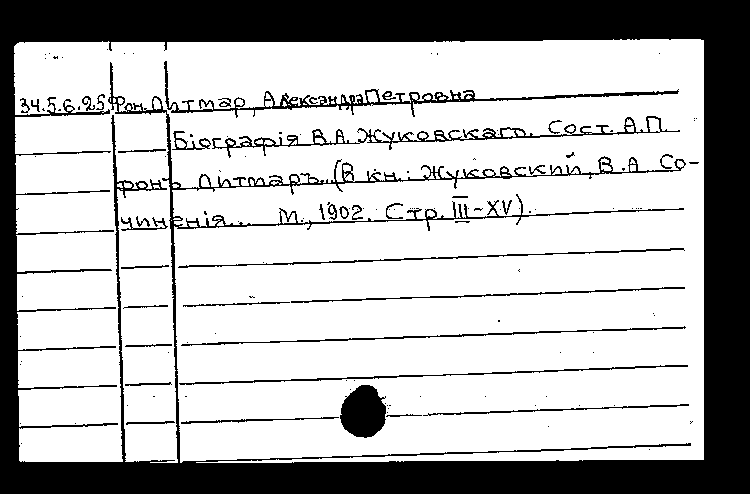 34.5.6.25 Фон-Дитмар, Александра Петровна
Біографія В.А. Жуковскаго. Сост. А.П.
фонъ Дитмаръ. (В кн.: Жуковский, В.А. Со-
чиненія... М., 1902. Стр. III-XV).